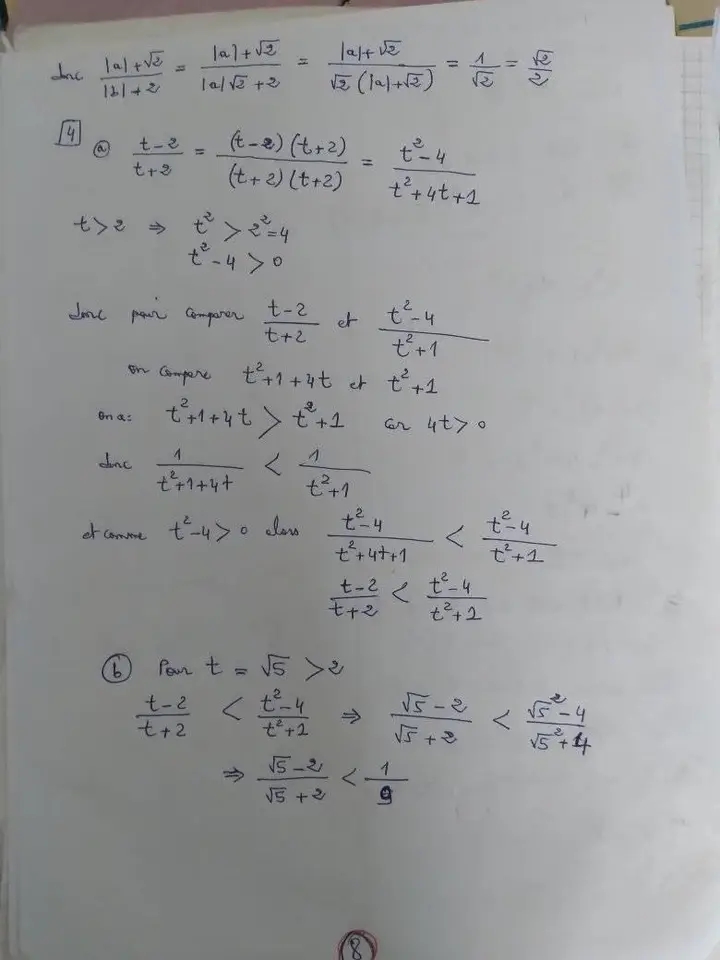 donc (|a|+√2)/(|b|+2) = (|a|+√2)/(|a|√2+2) = (|a|+√2)/(√2(|a|+√2)) = 1/√2 = √2/2
4 (a) (t-2)/(t+2) = ((t-2)(t+2))/((t+2)(t+2)) = (t²-4)/(t²+4t+1)
t>2 ⇒ t² > 2²=4
t²-4 > 0
donc pour comparer (t-2)/(t+2) et (t²-4)/(t²+1)
on compare t²+1+4t et t²+1
on a: t²+1+4t > t²+1 car 4t>0
donc 1/(t²+1+4t) < 1/(t²+1)
et comme t²-4>0 alors (t²-4)/(t²+4t+1) < (t²-4)/(t²+1)
(t-2)/(t+2) < (t²-4)/(t²+1)
(b) Pour t = √5 >2
(t-2)/(t+2) < (t²-4)/(t²+1) ⇒ (√5-2)/(√5+2) < (√5²-4)/(√5²+4)
⇒ (√5-2)/(√5+2) < 1/9
8